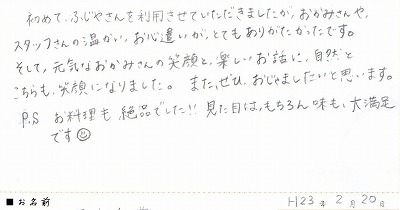 初めて、ふじやさんを利用させていただきましたが、おかみさんや、
スタッフさんの温かい、お心遣いが、とてもありがたかったです。
そして、元気なおかみさんの笑顔と、楽しいお話に、自然と
こちらも、笑顔になりました。また、ぜひ、おじゃましたいと思います。
P.S お料理も、絶品でした!! 見た目は、もちろん味も、大満足
です☺
■お名前
H23年2月20日